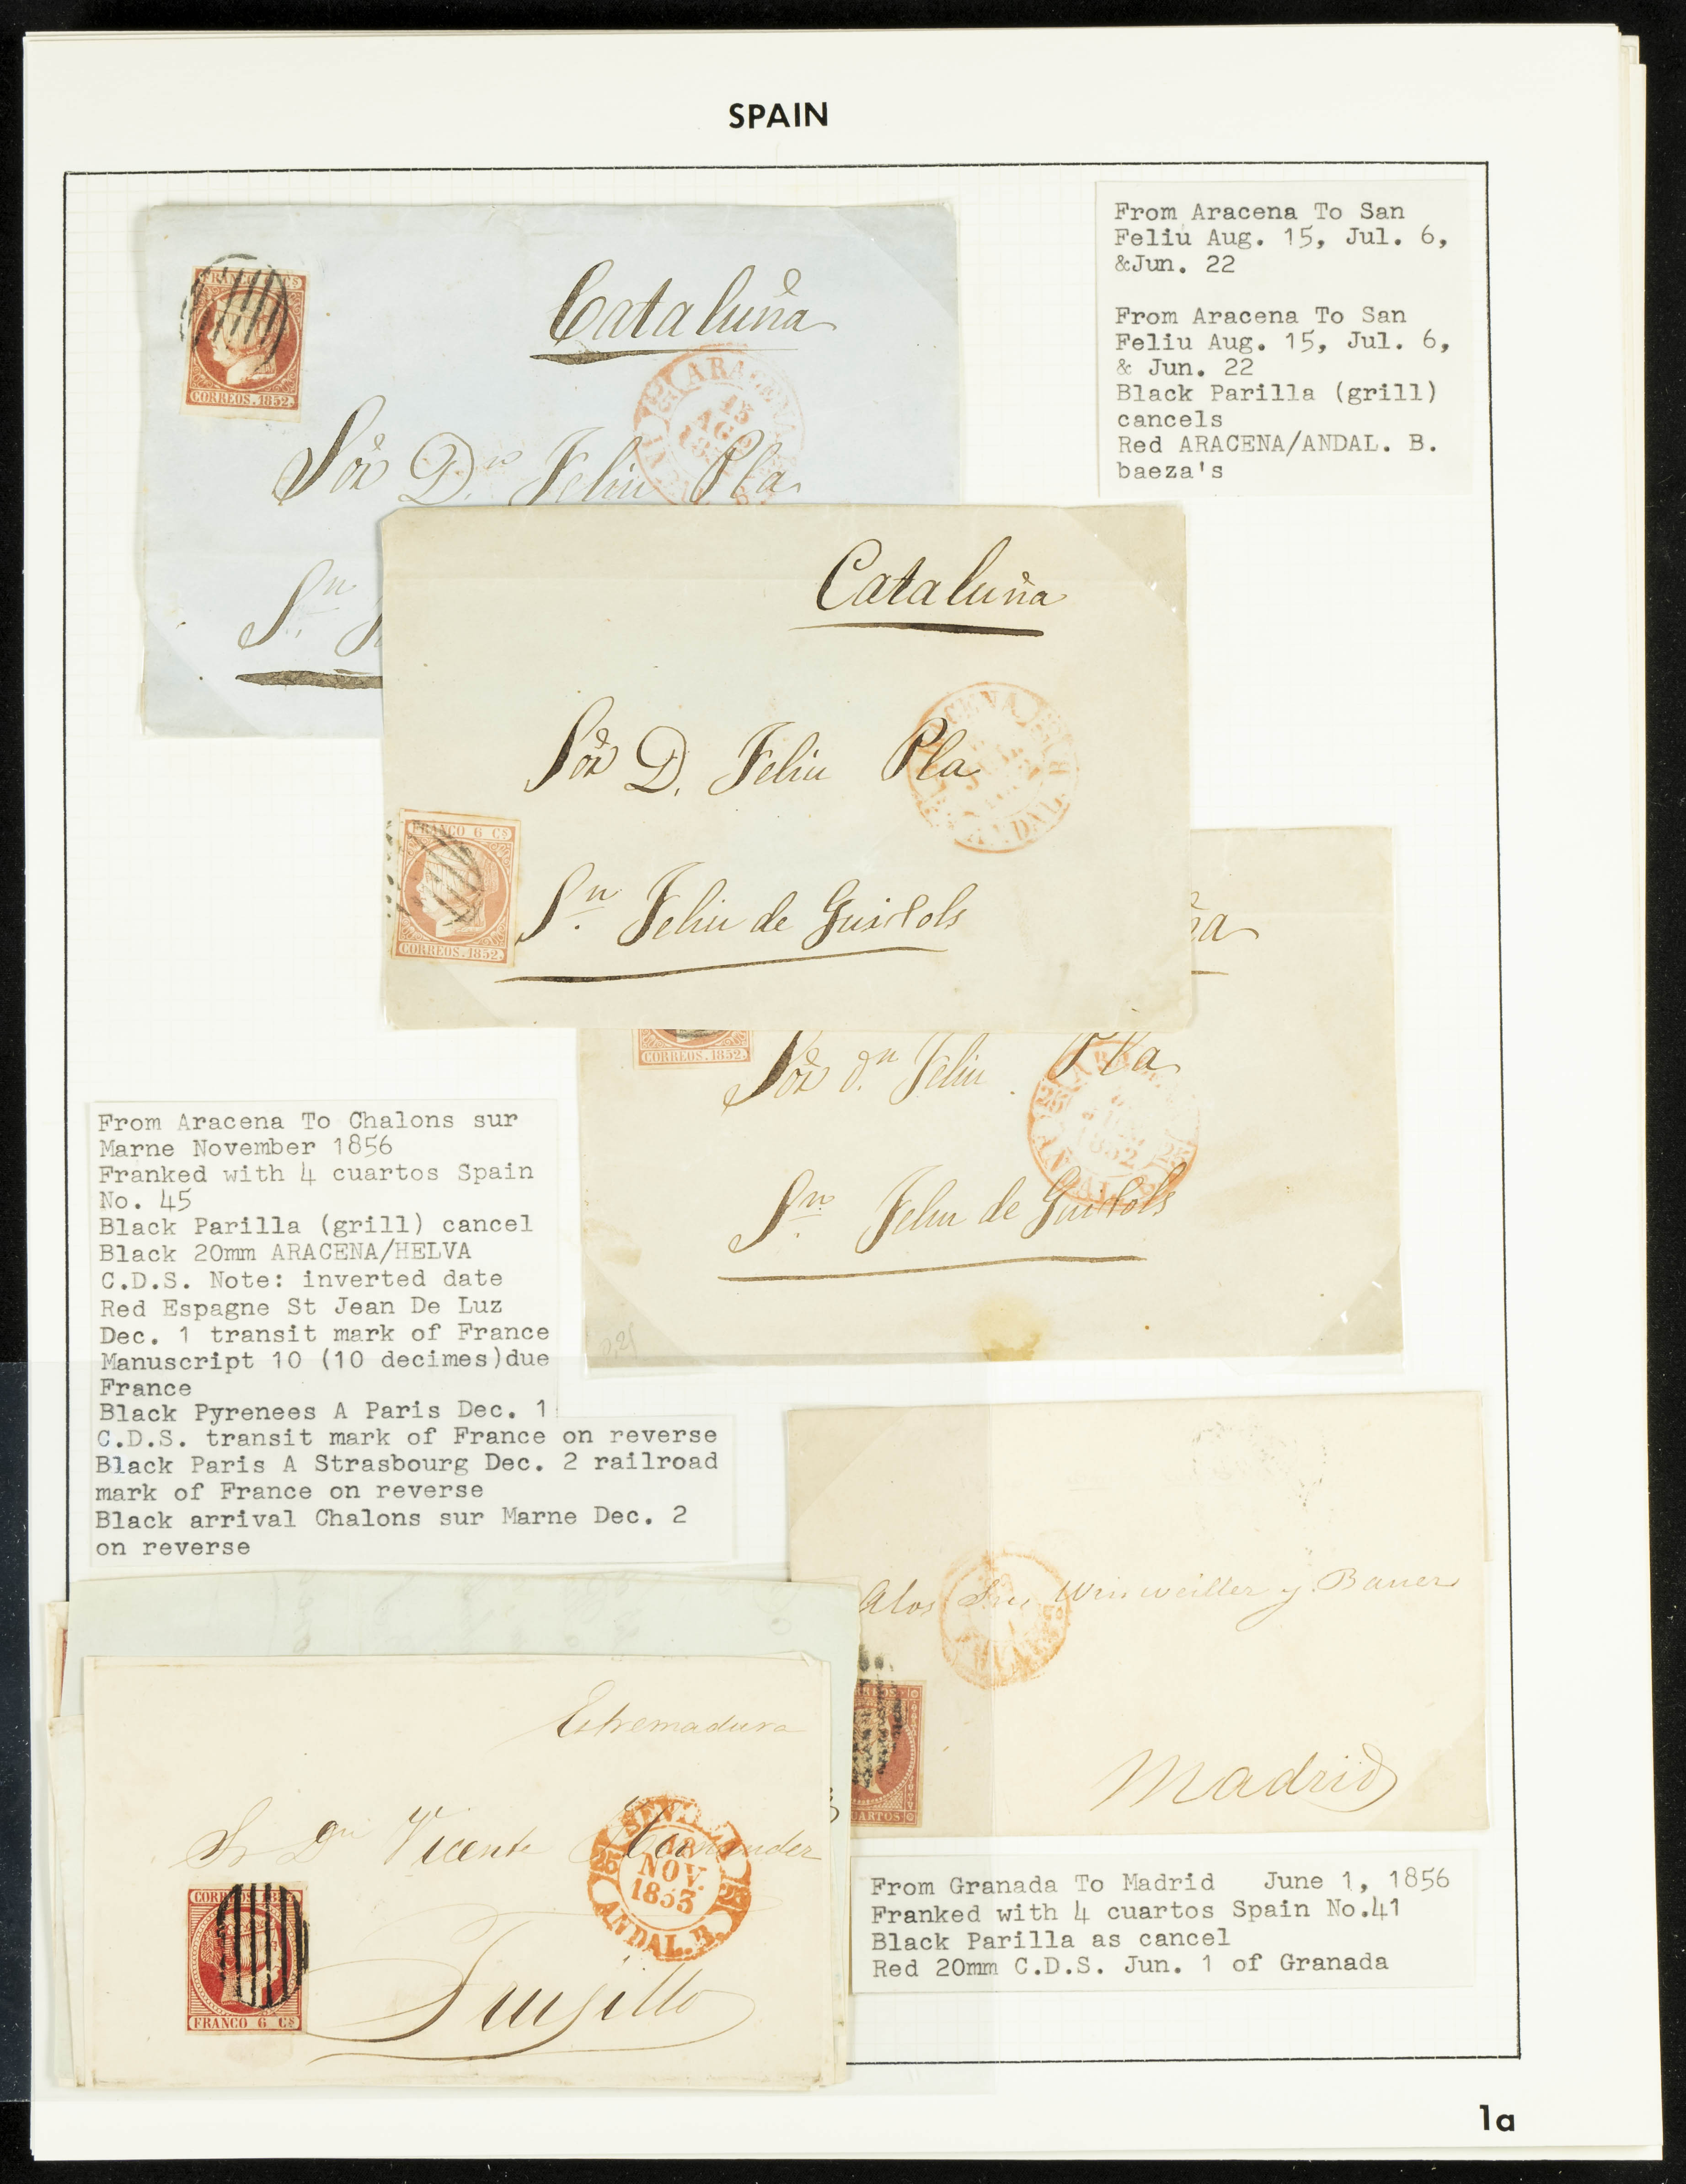 SPAIN
From Aracena To San
Feliu Aug. 15, Jul. 6,
&Jun. 22
From Aracena To San
Feliu Aug. 15, Jul. 6,
& Jun. 22
Black Parilla (grill)
cancels
Red ARACENA/ANDAL. B.
baeza's
FRANCO 6 Cs
CORREOS. 1852.
Cataluña
ARACENA
15
AGO
Sor Dn Feliu Pla
Sn
Cataluña
Sor D. Feliu Pla
ANDAL. B
FRANCO 6 Cs
CORREOS. 1852.
Sn. Feliu de Guixols
ña
CORREOS. 1852.
Sor Dn Feliu Pla
25
1852
ANDAL
Sn. Feliu de Guixols
From Aracena To Chalons sur
Marne November 1856
Franked with 4 cuartos Spain
No. 45
Black Parilla (grill) cancel
Black 20mm ARACENA/HELVA
C.D.S. Note: inverted date
Red Espagne St Jean De Luz
Dec. 1 transit mark of France
Manuscript 10 (10 decimes)due
France
Black Pyrenees A Paris Dec. 1
C.D.S. transit mark of France on reverse
Black Paris A Strasbourg Dec. 2 railroad
mark of France on reverse
Black arrival Chalons sur Marne Dec. 2
on reverse
Alos Sres Winweiller y Bauer
Madrid
UARTOS
Estremadura
Sr Dn Vicente
SEVILLA
18
NOV.
1853
25 25
ANDAL. B.
CORREOS 1853
FRANCO 6 Cs
Trujillo
From Granada To Madrid June 1, 1856
Franked with 4 cuartos Spain No.41
Black Parilla as cancel
Red 20mm C.D.S. Jun. 1 of Granada
1a